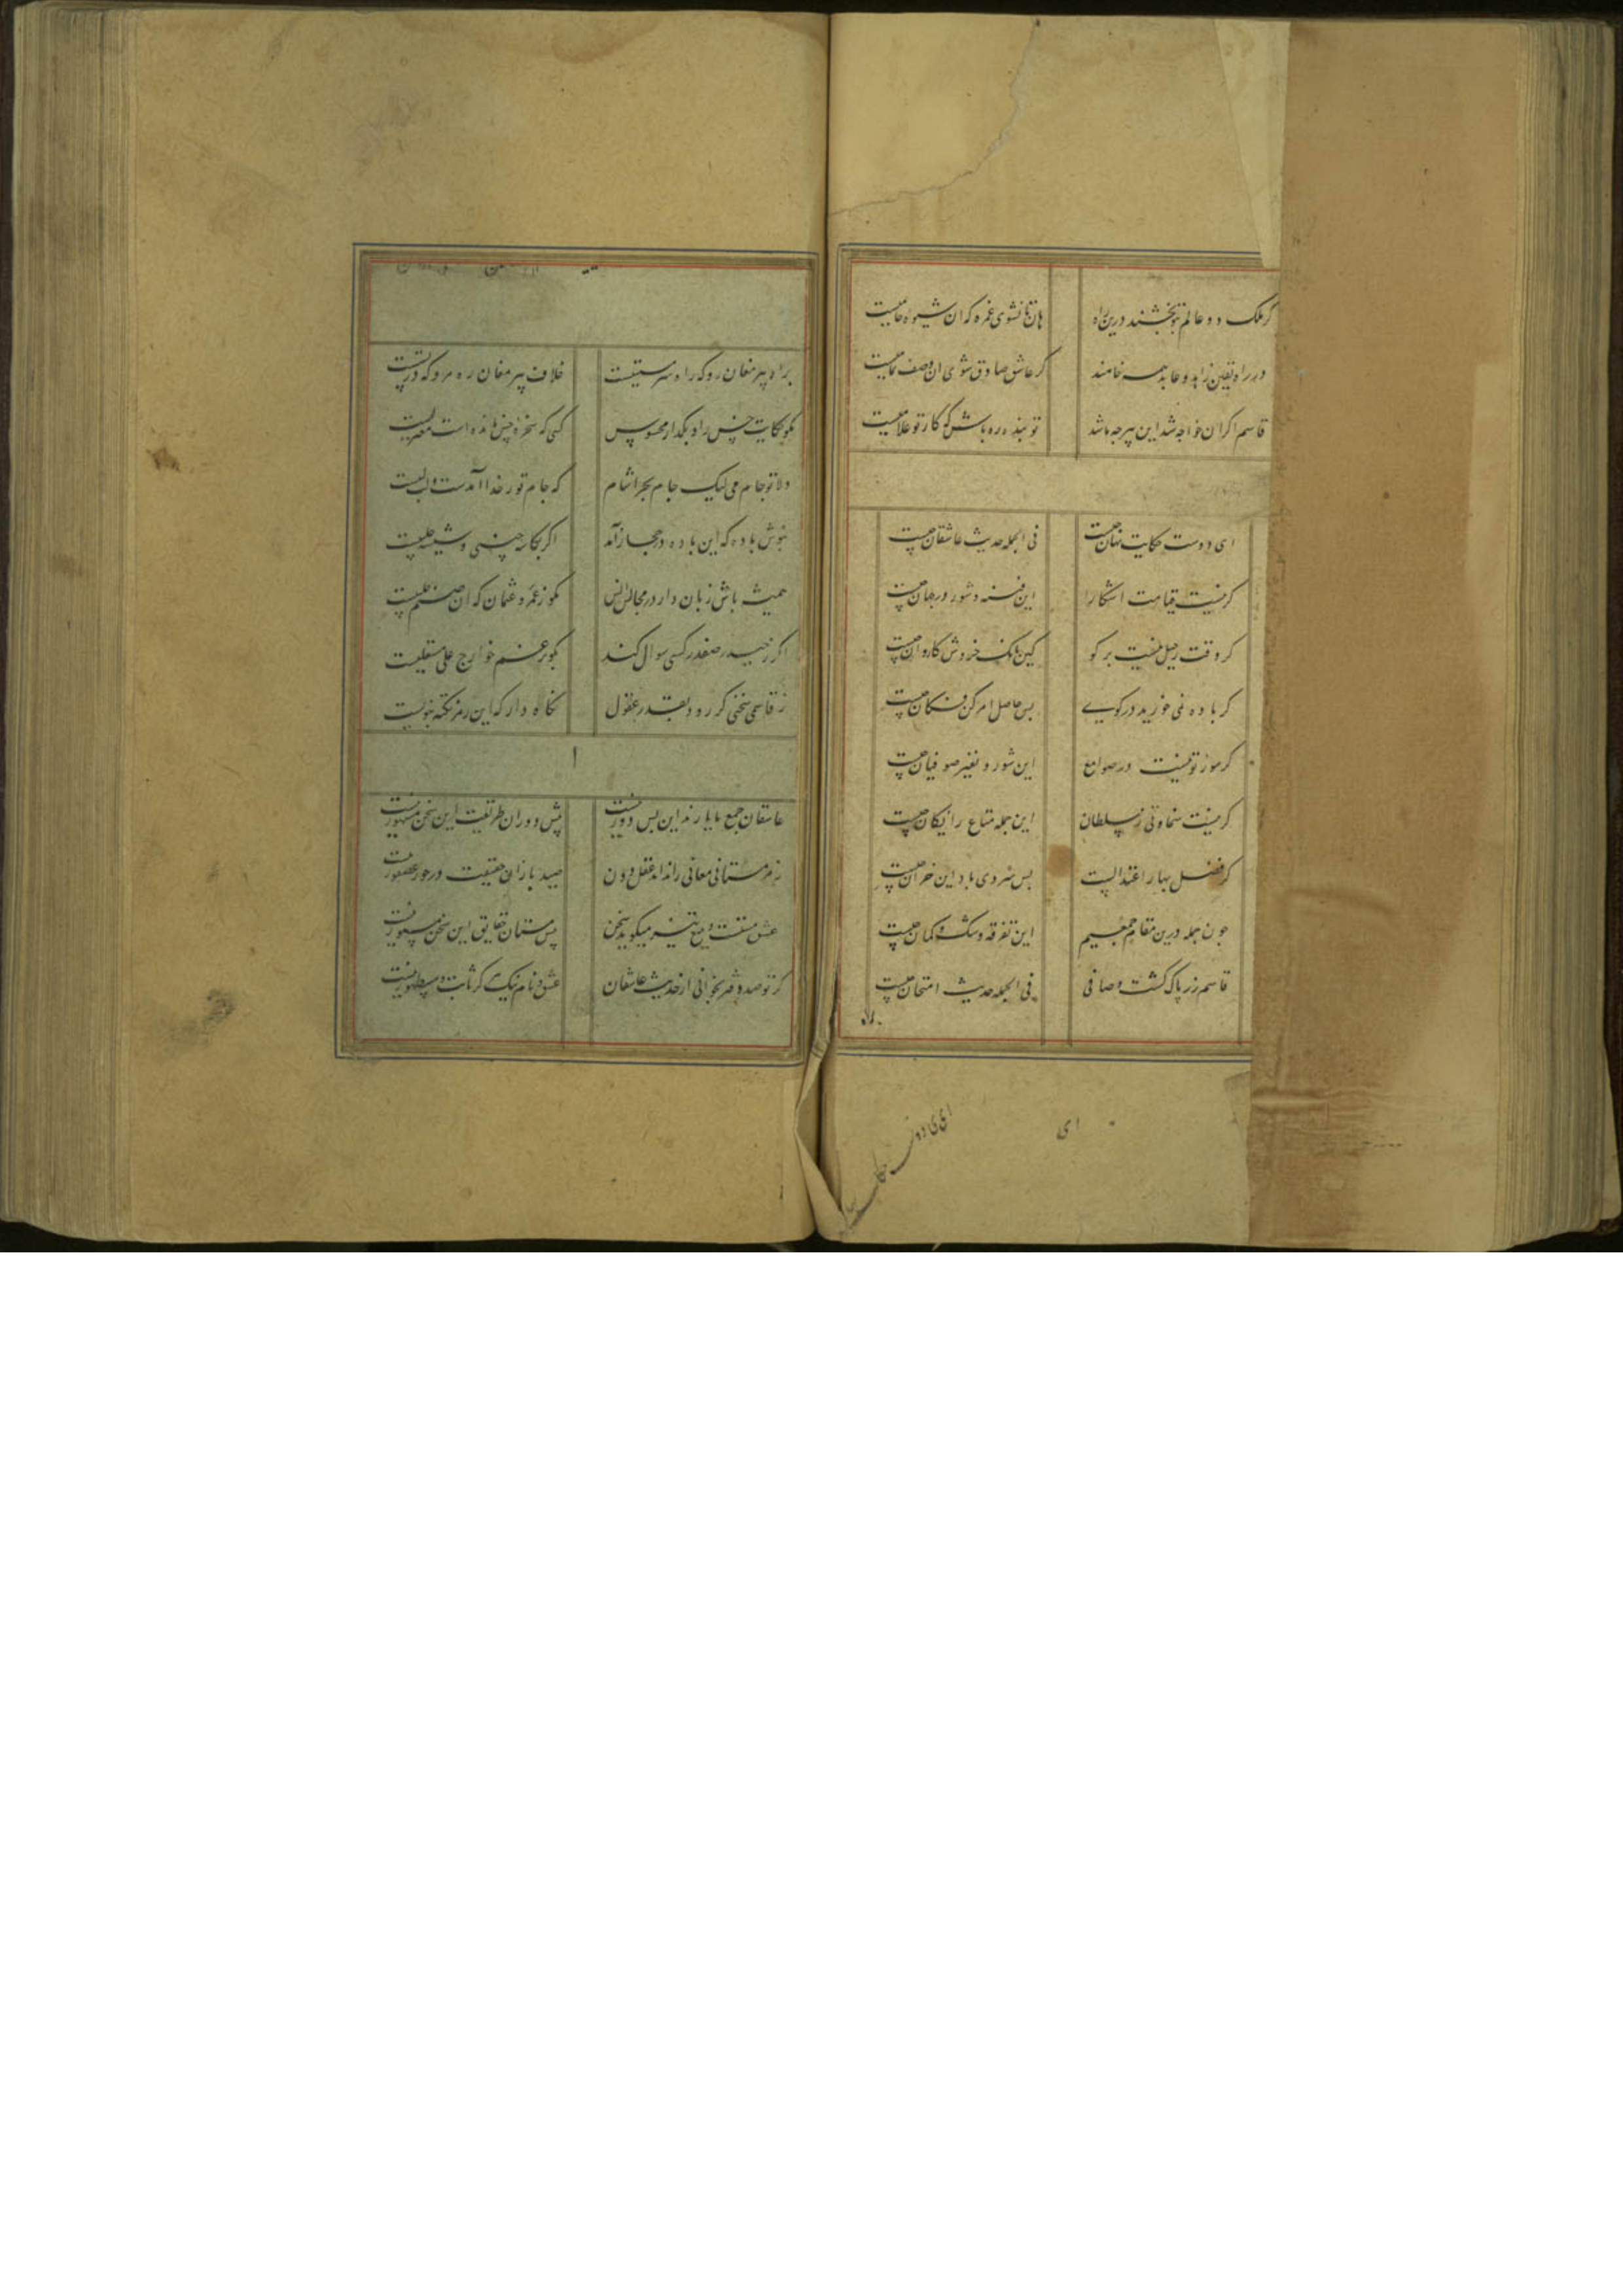 گر ملک دو عالم بتو بخشند درین راه هان تا نشوی غره که ان شیوه عامیست
در راه یقین زاهد و عابد همه خامند گر عاشق صادق شوی ان وصف تمامیست
قاسم اگر ان خواجه شد این میر چه باشد تو بنده ره باش که کار تو غلامیست
ای دوست حکایت نهان چیست فی الجمله حدیث عاشقان چیست
گر نیست قیامت اشکارا این فتنه و شور در جهان چیست
گر وقت رحیل نیست برگو کین بانک خروش کاروان چیست
گر باده نمی خورید در کوی بس حاصل امر کن فکان چیست
گر سوز تو نیست در صوامع این شور و نفیر صوفیان چیست
گر نیست سخاوتی ز سلطان این جمله متاع رایکان چیست
گر فصل بهار اعتدالیست بس سردی باد این خزان چیست
چون جمله درین مقام جمعیم این تفرقه و شک و کمان چیست
قاسم زر پاک کشت و صافی فی الجمله حدیث امتحان چیست
براه
ای ای دوست حکایت
براه پیر مغان رو که راه سرمستیست خلاف پیر مغان ره مرو که
مگو حکایت حس را و بگذار محسوس کسی که سخره حس مانده است
دلا تو جام می لیک جام بحر اشام که جام تو ز خدا آمدست
بنوش باده که این باده در حجاز آمد اگر بکاسه چینی و شیشه حلبیست
همیشه باش زبان دار در مجالس انس مگو ز عمر و عثمان که ان
اگر ز حیدر صفدر کسی سوال کند بگو برغم خوارج علی
ز قاسمی سخنی گر رود بقدر عقول نگاه دار که این رمز نکته نبویست
عاشقان جمع با یارند این بس دور نیست پیش دوران طریقت این سخن مشهور نیست
رمز مستانی معانی را نداند عقل دون صید بازان حقیقت در خور عصفور نیست
عشق مستست و تیغ تیز میگوید سخن پیش مستان حقایق این سخن مستور نیست
گر تو صد دفتر بخوانی از حدیث عاشقان عشق و نام نیک گر ثابت و مسطور نیست